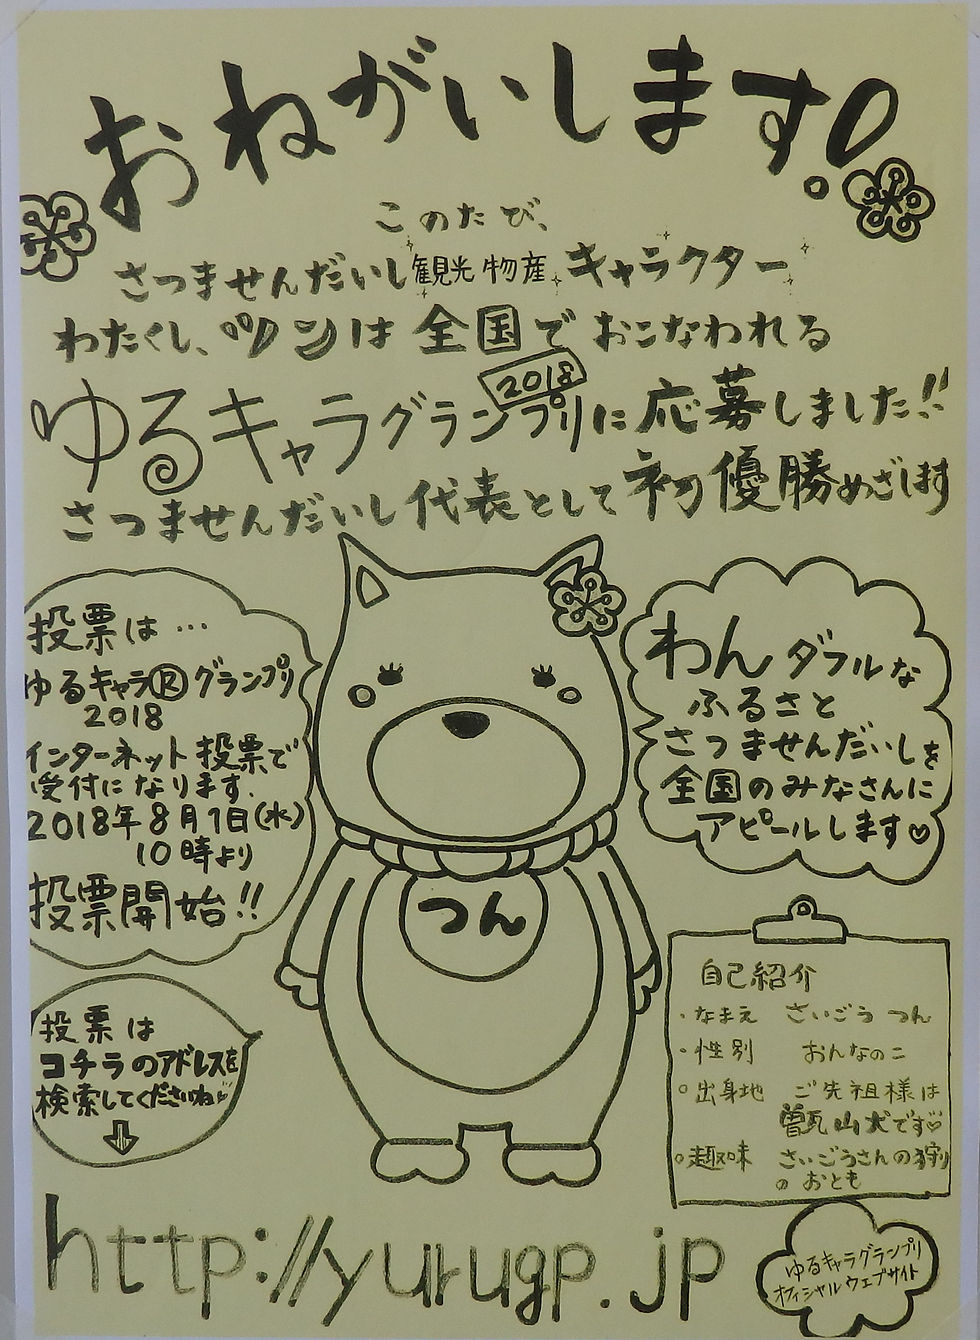 おねがいします!
このたび、
さつませんだいし観光物産キャラクター
わたくし、ツンは全国でおこなわれる
2018
ゆるキャラグランプリに応募しました!!
さつませんだいし代表として初優勝めざします
投票は…
ゆるキャラ®グランプリ
2018
インターネット投票で
受付になります.
2018年8月1日(水)
10時より
投票開始!!
わんダフルな
ふるさと
さつませんだいしを
全国のみなさんに
アピールします♡
つん
投票は
コチラのアドレスを
検索してくださいね♡
⇩
自己紹介
・なまえ さいごう つん
・性別 おんなのこ
○出身地 ご先祖様は
甑山犬です♡
○趣味 さいごうさんの狩り
のおとも
http://yurugp.jp
ゆるキャラグランプリ
オフィシャルウェブサイト